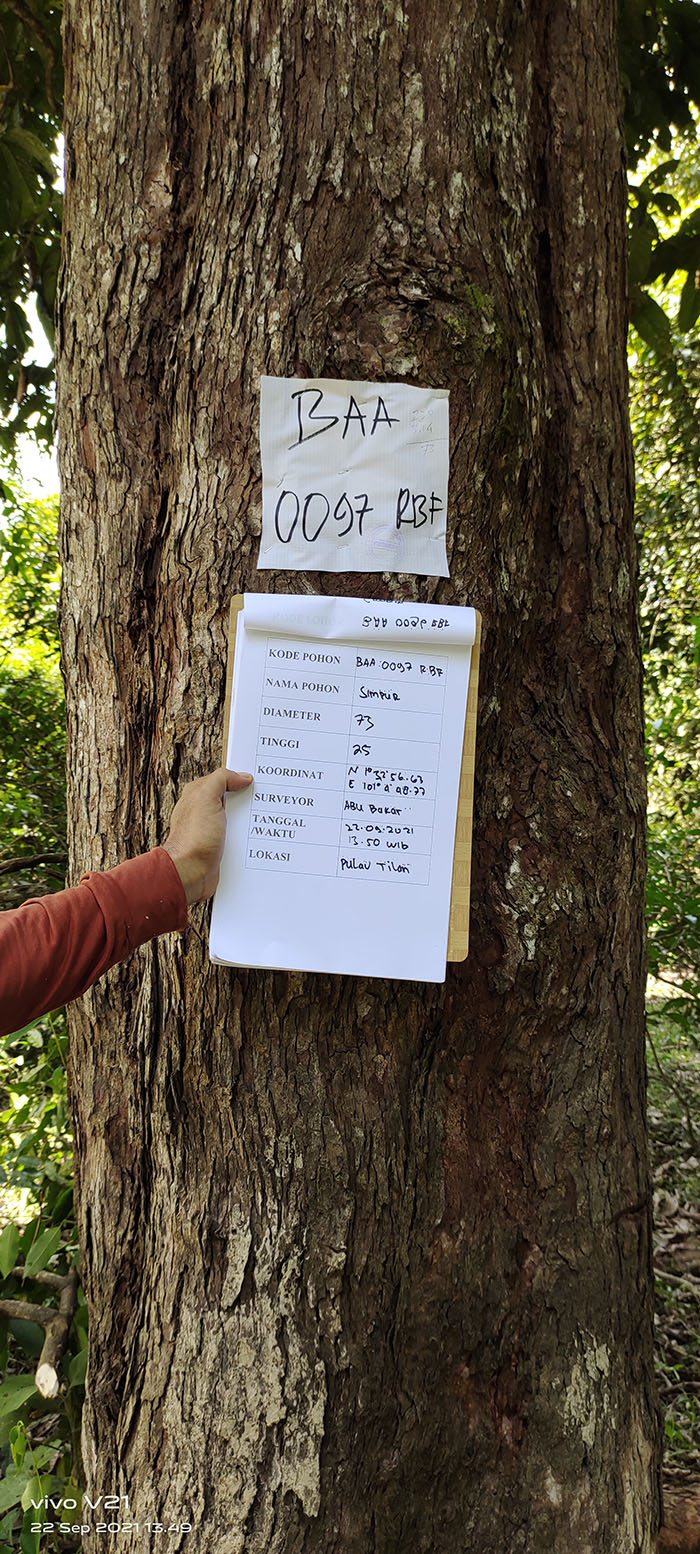 BAA
0097 RBF
KODE POHON BAA 0097 RBF
NAMA POHON Simpur
DIAMETER 73
TINGGI 25
KOORDINAT N 1° 32' 56.63
E 101° 4' 48.77
SURVEYOR ABU Bakar
TANGGAL 22.09.2021
/WAKTU 13.50 WIB
LOKASI PULAU Tilan
vivo V21
22 Sep 2021 13.49